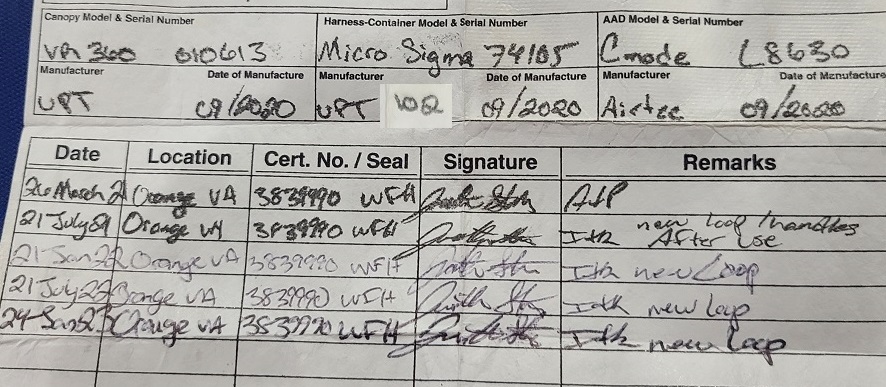 Canopy Model & Serial Number Harness-Container Model & Serial Number AAD Model & Serial Number
VR 360 010613 Micro Sigma 74105 Cmode L8630
Manufacturer Date of Manufacture Manufacturer Date of Manufacture Manufacturer Date of Manufacture
UPT 09/2020 UPT 102 09/2020 Airtec 09/2020
Date Location Cert. No. / Seal Signature Remarks
26 March 21 Orange VA 3839990 WFH
new loop/handles
21 July Orange 3839990 WFH I+R After Use
21 Jan 22 Orange VA 3839990 WFH I+R new Loop
21 July 22 Orange VA 3839990 WFH I+R new loop
24 Jan 23 Orange VA 3839990 WFH I+R new loop